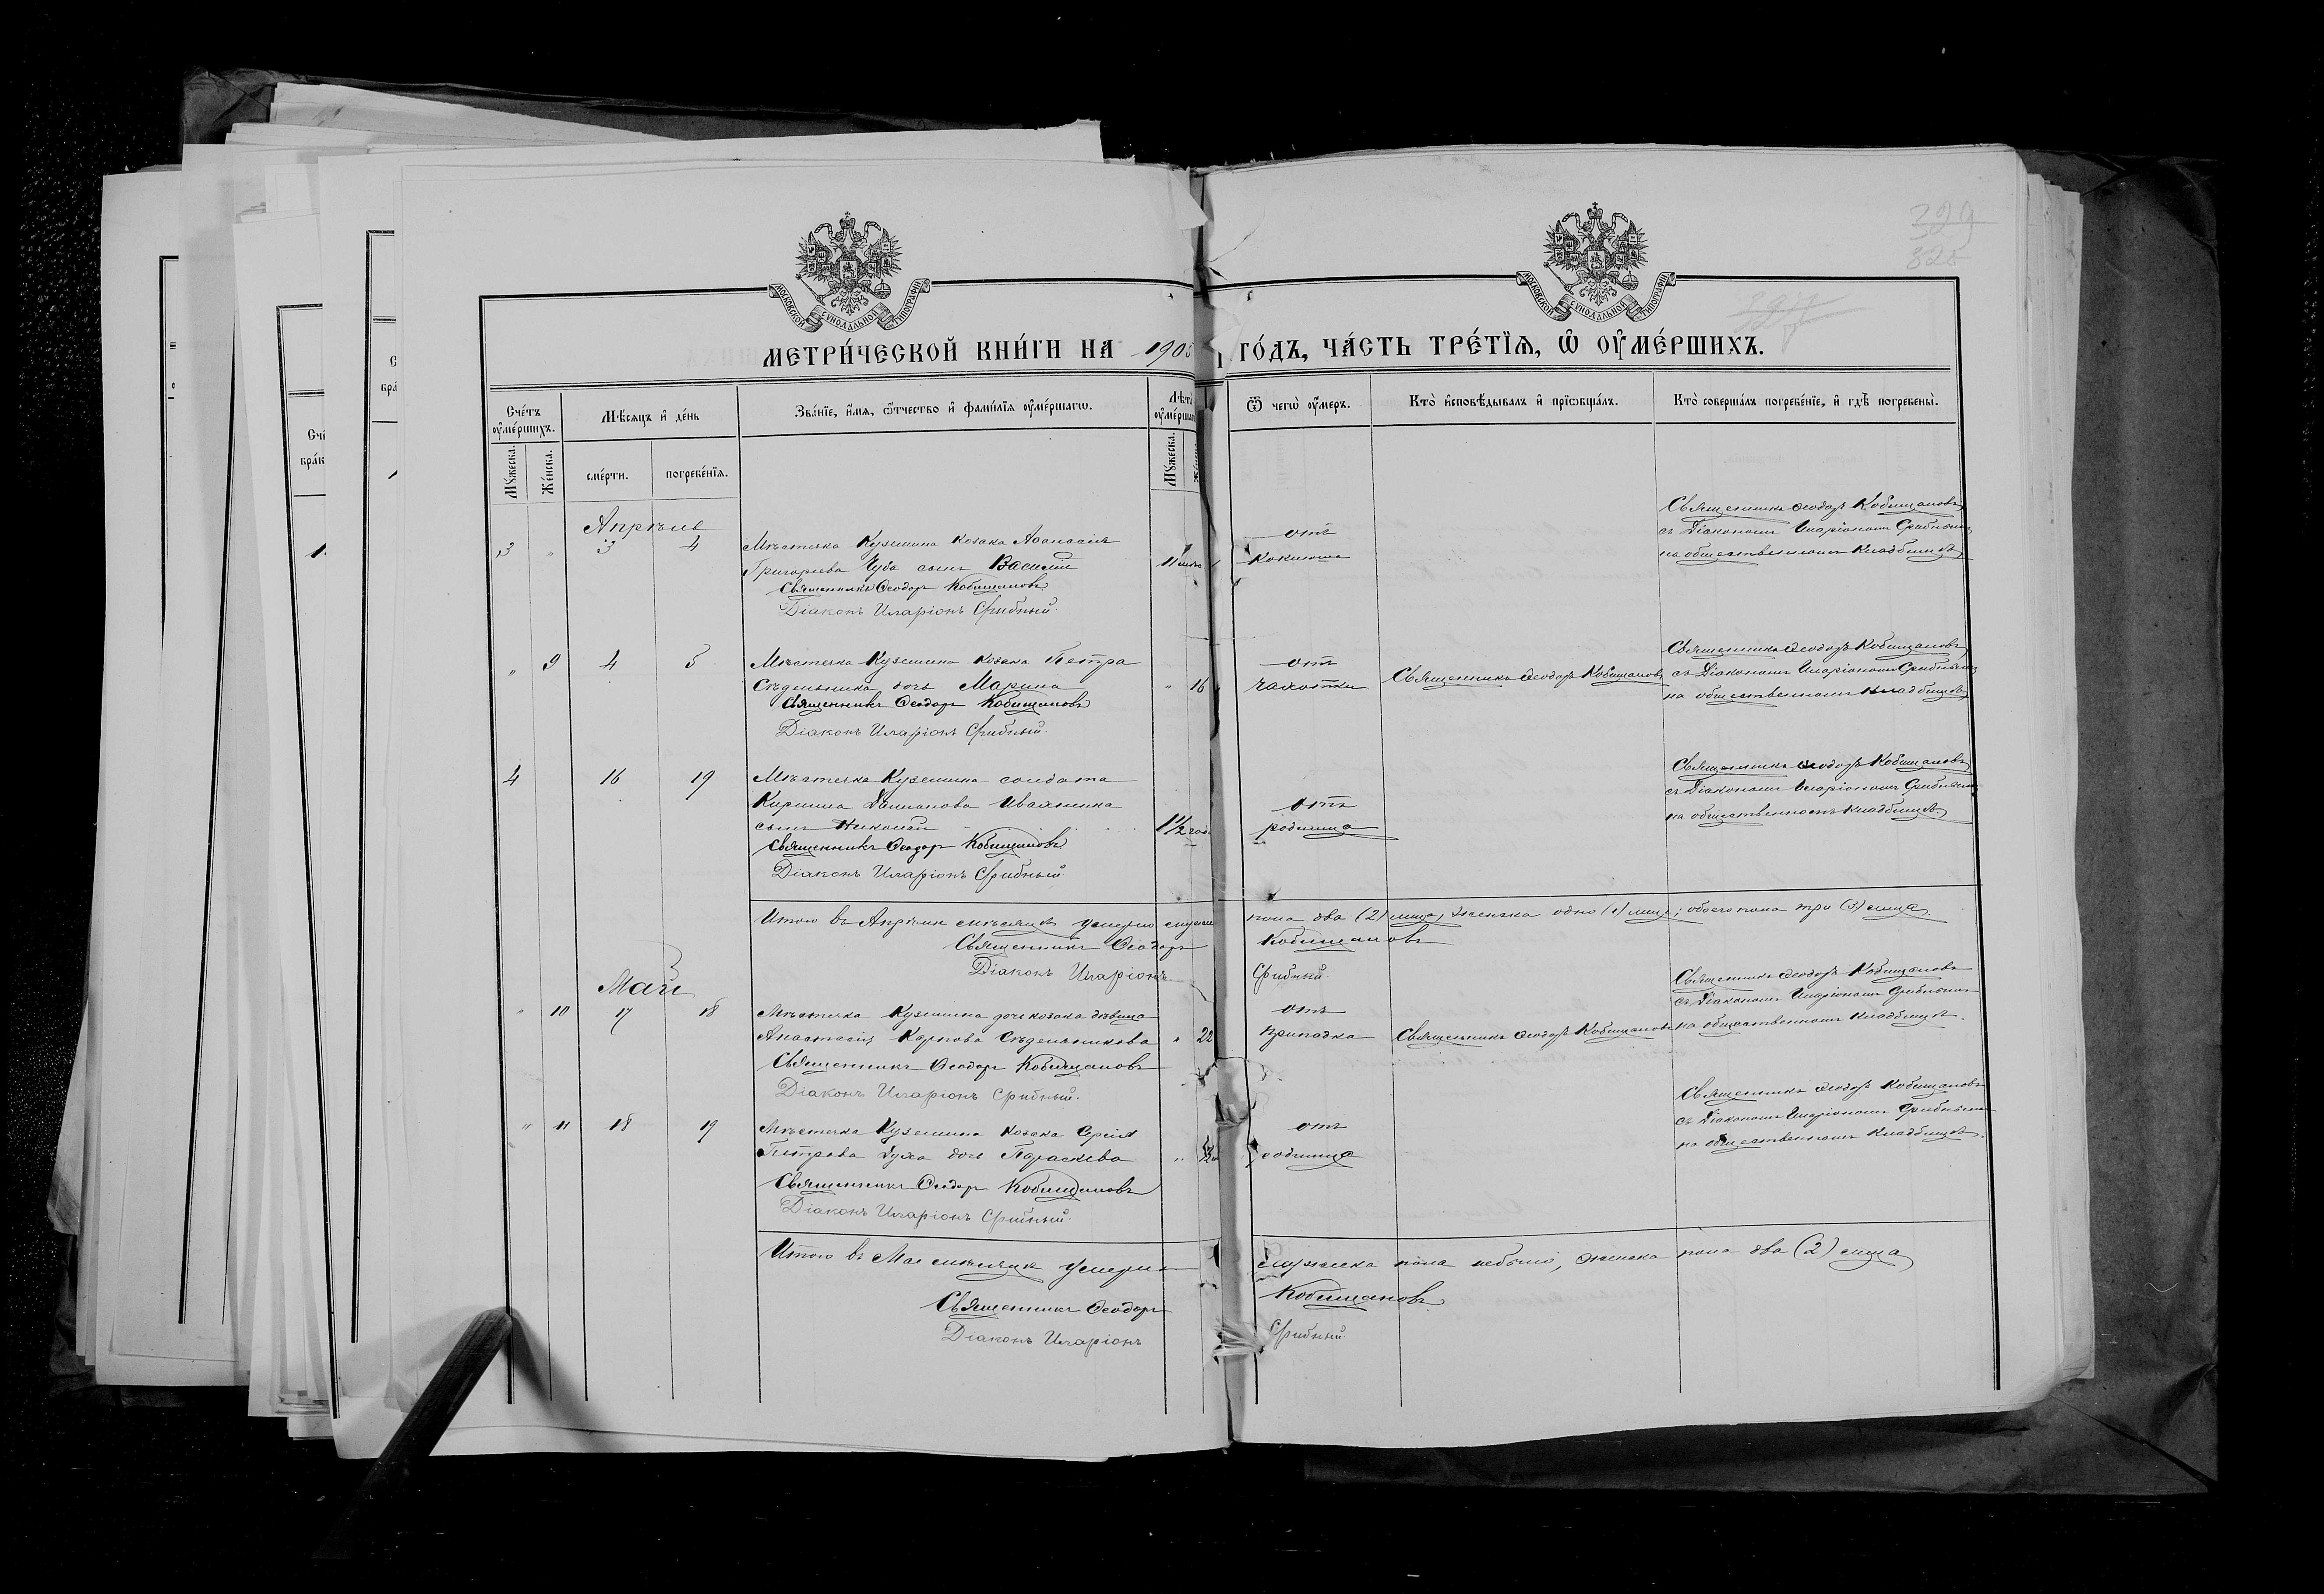 МОСКОВСКОЙ СУНОДАЛЬНОЙ ТИПОГРАФІИ
МОСКОВСКОЙ СУНОДАЛЬНОЙ ТИПОГРАФІИ
329
325
МЕТРИ́ЧЕСКОЙ КНИ́ГИ НА 1905 ГО́ДЪ, ЧА́СТЬ ТРЕ́ТІѦ, Ѡ ОУМЕ́РШИХЪ.
Сче́тъ оумéршихъ.
Мѣ́сяцъ и҆ де́нь
Зва́нїе, и҆́мѧ, ѻ҆́тчество и҆ фами́лїѧ оумéршагѡ.
Лѣ́та оумéршагѡ
Ѿ чегѡ̀ оу҆́меръ.
Кто̀ и҆сповѣ́дывалъ и҆ прїѡбща́лъ.
Кто̀ соверша́лъ погребе́нїе, и҆ гдѣ̀ погребены̀.
Мꙋ́жеска.
Же́нска.
сме́рти.
погребе́нїѧ.
Мꙋ́жеска.
Апрѣль
3 " 3 4
Мѣстечка Куземина козака Аѳанасія
Григорьева Чуба сынъ Василій
11 мѣс
Священникъ Ѳеодоръ Кобищановъ
Діаконъ Иларіонъ Срибный.
отъ
коклюша
Священникъ Ѳеодоръ Кобищановъ
съ Діакономъ Иларіономъ Срибнымъ
на общественномъ кладбищѣ
" 9 4 5
Мѣстечка Куземина козака Петра
Сѣдельника дочь Марина
" 16
Священникъ Ѳеодоръ Кобищановъ
Діаконъ Иларіонъ Срибный.
отъ
чахотки
Священникъ Ѳеодоръ Кобищановъ
Священникъ Ѳеодоръ Кобищановъ
съ Діакономъ Иларіономъ Срибнымъ
на общественномъ кладбищѣ
4 16 19
Мѣстечка Куземина солдата
Кирилла Даміанова Ивахненка
сынъ Николай
1 1/2 год.
Священникъ Ѳеодоръ Кобищановъ
Діаконъ Иларіонъ Срибный
отъ
родимца
Священникъ Ѳеодоръ Кобищановъ
съ Діакономъ Иларіономъ Срибнымъ
на общественномъ кладбищѣ.
Итого въ Апрѣлѣ мѣсяцѣ умерло мужеска пола два (2) лица, женска одно (1) лице; обоего пола три (3) лица.
Священникъ Ѳеодоръ Кобищановъ
Діаконъ Иларіонъ Срибный.
Май
" 10 17 18
Мѣстечка Куземина дочь козака дѣвица
Анастасія Карпова Сѣдельникова
" 22
Священникъ Ѳеодоръ Кобищановъ
Діаконъ Иларіонъ Срибный.
отъ
припадка
Священникъ Ѳеодоръ Кобищановъ
Священникъ Ѳеодоръ Кобищановъ
съ Діакономъ Иларіономъ Срибнымъ
на общественномъ кладбищѣ.
" 11 18 19
Мѣстечка Куземина козака
Петрова Духа дочь Параскева
Священникъ Ѳеодоръ Кобищановъ
Діаконъ Иларіонъ Срибный.
отъ
родимца
Священникъ Ѳеодоръ Кобищановъ
съ Діакономъ Иларіономъ Срибнымъ
на общественномъ кладбищѣ.
Итого въ Маѣ мѣсяцѣ умерло мужеска пола небыло, женска пола два (2) лица
Священникъ Ѳеодоръ Кобищановъ
Діаконъ Иларіонъ Срибный.